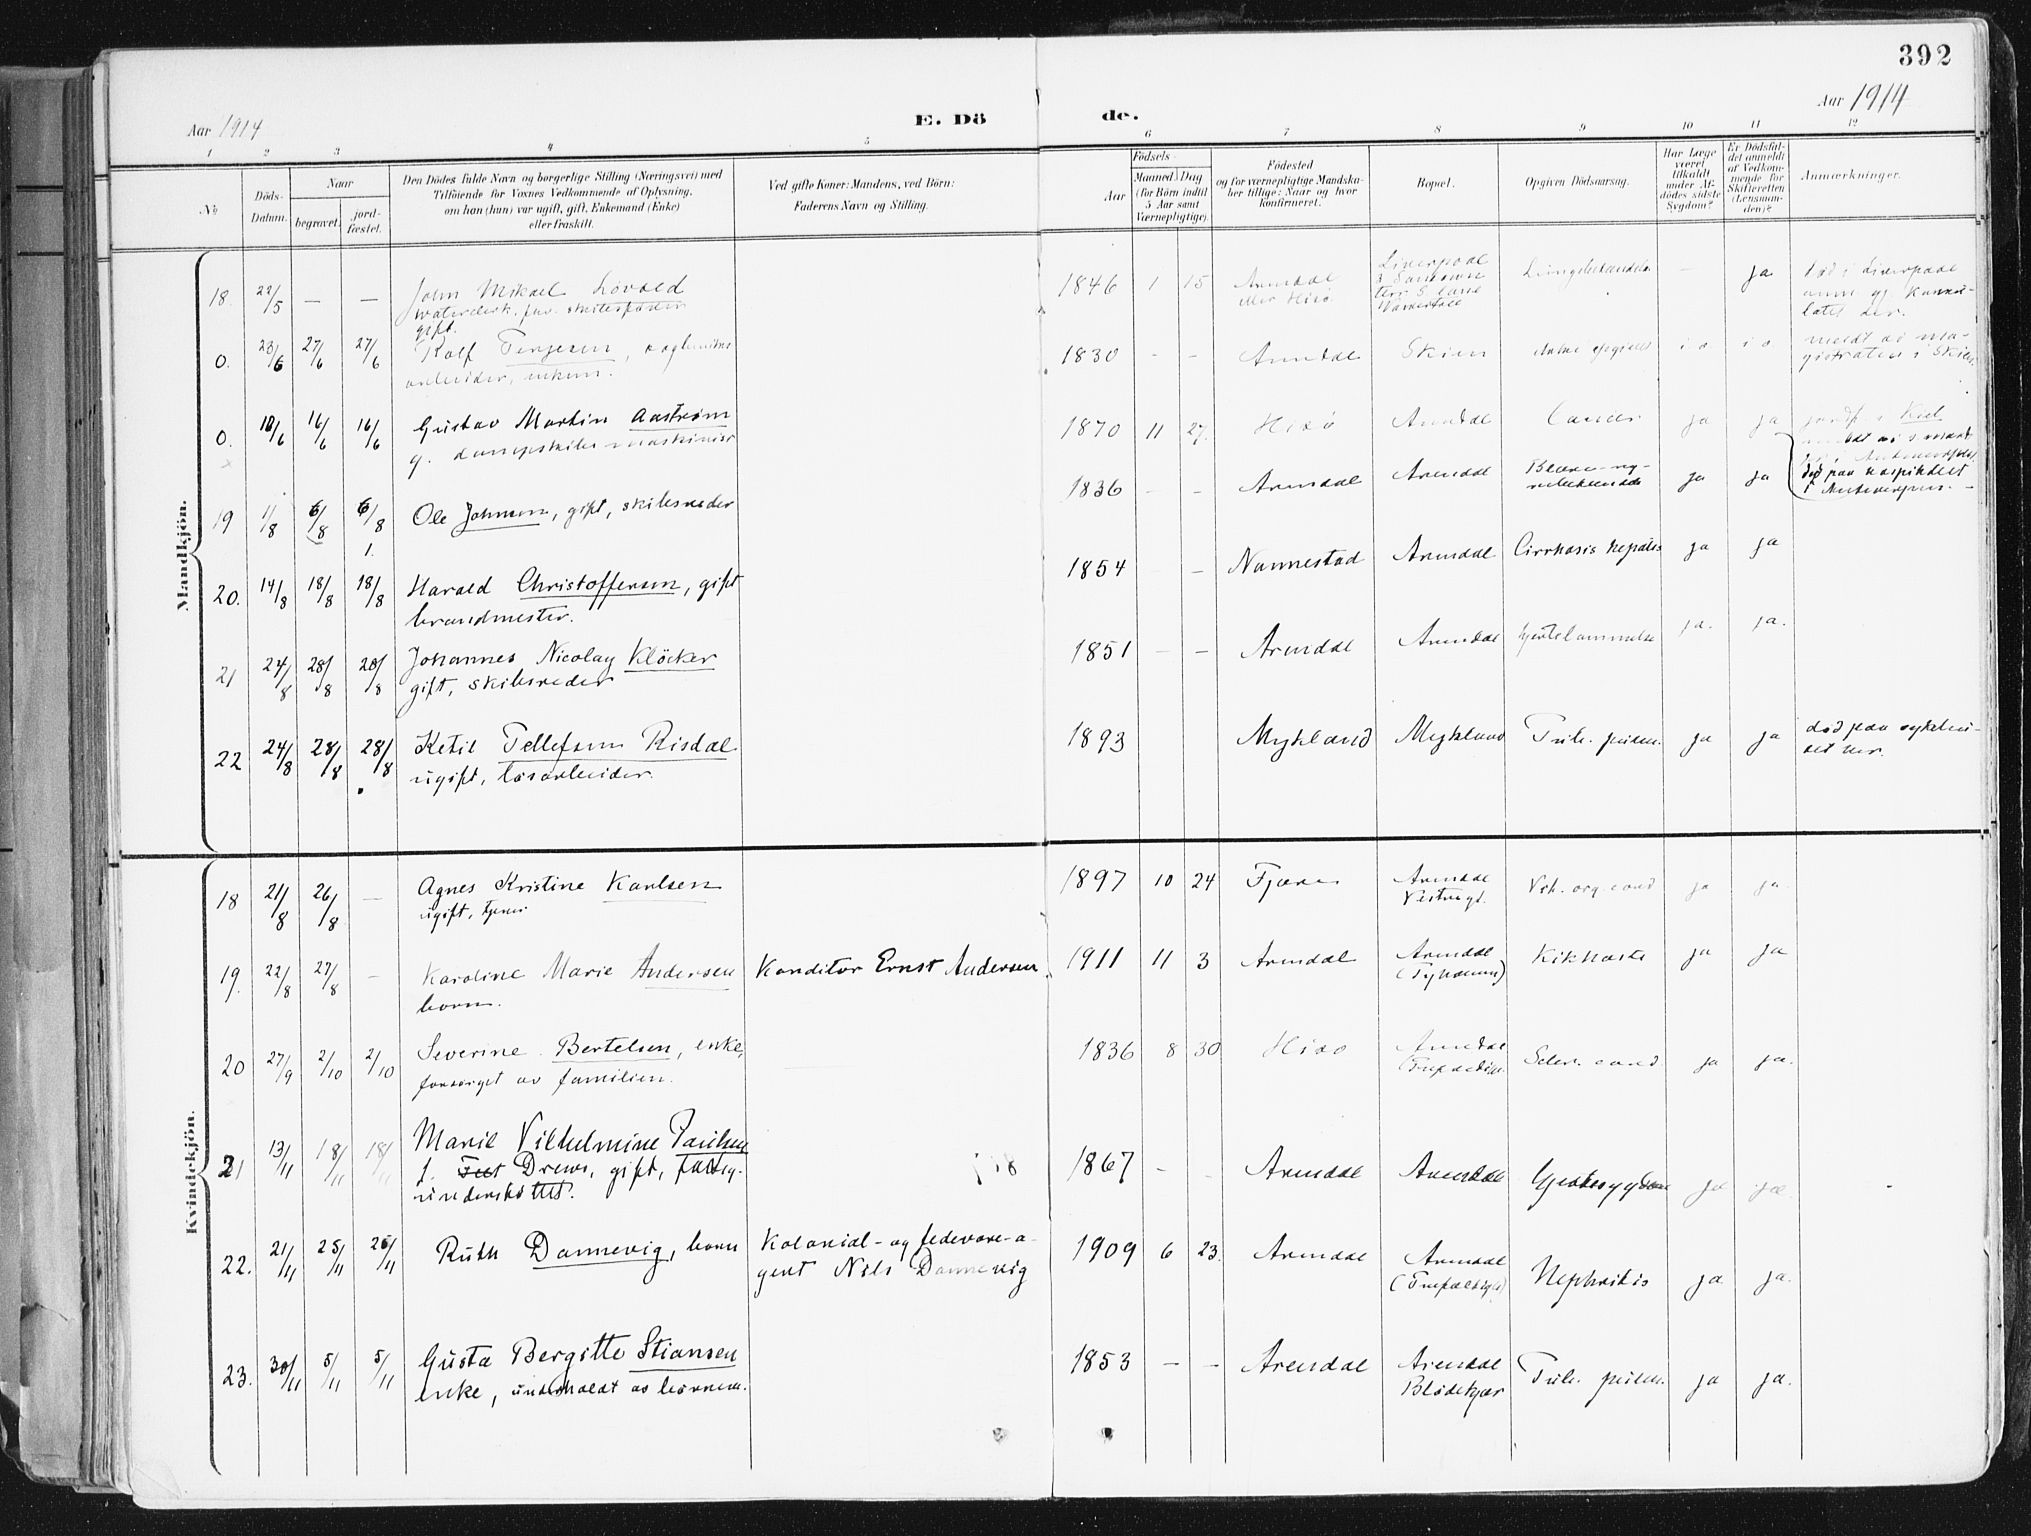 392
Aar 1914
E. Dö
de.
Aar 1914
1 2 3 4 5 6 7 8 9 10 11 12
№
Döds-
Datum.
Naar
begravet.
jord-
fæstet.
Den Dödes fulde Navn og borgerlige Stilling (Næringsvei) med
Tilföiende for Voxnes Vedkommende af Oplysning,
om han (hun) var ugift, gift, Enkemand (Enke)
eller fraskilt.
Ved gifte Koner: Mandens, ved Börn:
Faderens Navn og Stilling.
Födsels-
Aar
Maaned
Dag
(for Börn indtil
5 Aar samt
Værnepligtige).
Födested
og for værnepligtige Mandska-
ber tillige: Naar og hvor
konfirmeret.
Bopæl.
Opgiven Dödsaarsag.
Har Læge
været
tilkaldt
under Af-
dödes sidste
Sygdom?
Er Dödsfal-
det anmeldt
af Vedkom-
mende for
Skifteretten
(Lensman-
den)?
Anmærkninger.
Mandkjön.
18. 22/5 — — John Mikael Lövold
gift.
1846 1 15 Arendal
eller Hisö
Liverpool
ja
død i Liverpool
0. 23/6 27/6 27/6 Rolf Terjesen,
arbeider, enkem.
1830 - - Arendal Skien
meldt av ma-
gistraten i Skien
0. 10/6 16/6 16/6 Gustav Martin Aastrøm
g. dampskibsmaskinist
1870 11 27. Hisö Arendal Cancer ja ja
død paa hospitalet
i Antwerpen.
19 1/8 6/8 6/8 Ole Johnsen, gift, skibsreder
1836 - - Arendal Arendal ja ja
20. 14/8 18/8 18/8 Harald Christoffersen, gift
brandmester.
1854 - Nannestad Arendal Cirrhosis hepatis ja ja
21 24/8 28/8 28/8 Johannes Nicolay Klöcker
gift, skibsreder
1851 - - Arendal Arendal hjertelammelse ja. ja.
22 24/8 28/8 28/8 Ketil Tellefsen Risdal
ugift, løsarbeider.
1893 Mykland Mykland Tub. pulm. ja ja død paa sykehu-
set her.
Kvindekjön.
18 21/8 26/8 — Agnes Kristine Karlsen
ugift, tjener
1897 10 24 Fjære Arendal
Vit. org. cord ja ja.
19. 22/8 27/8 - Karoline Marie Andersen
barn.
Konditor Ernst Andersen.
1911 11 3 Arendal Arendal
(Tyholmen)
Kikhoste ja ja
20 27/9 2/10 2/10 Severine Bertelsen, enke,
forsørget av familien.
1836 8 30 Hisö Arendal
Scler. cord ja ja.
21 13/11 18/11 18/11 Marie Vilhelmine Paulsen
f. Drews, gift, fattig-
understøttet.
1867 - - Arendal Arendal Hjertesygdom ja ja.
22. 21/11 25/11 25/11 Ruth Dannevig, barn
Kolonial- og fedevare-a-
gent Nils Dannevig
1909 6 23. Arendal Arendal
Nephritis ja ja.
23. 30/11 5/11 5/11 Gusta Bergitte Stiansen
enke, underholdt av børnene.
1853 — - Arendal Arendal
Blödekjær
Tub. pulm. ja ja.